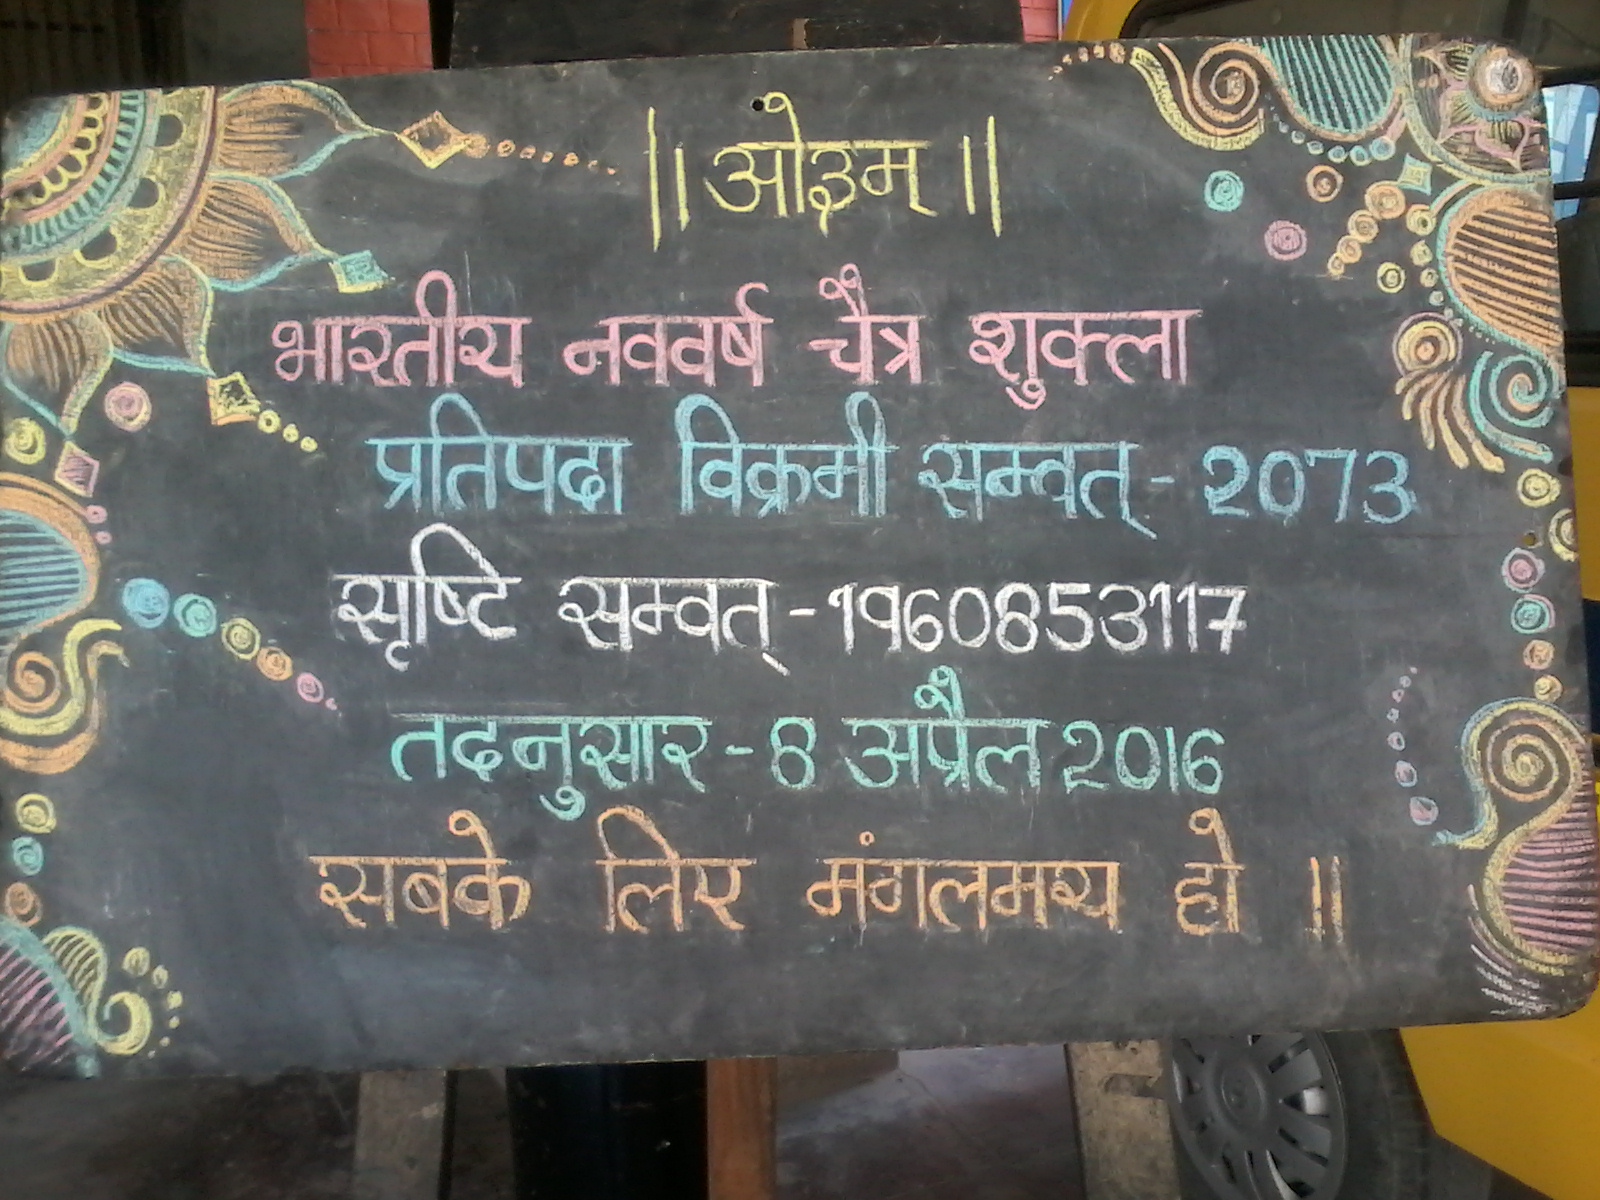 || ओ३म् ||
भारतीय नववर्ष चैत्र शुक्ला
प्रतिपदा विक्रमी सम्वत् - 2073
सृष्टि सम्वत् - 1960853117
तदनुसार - 8 अप्रैल 2016
सबके लिए मंगलमय हो ||